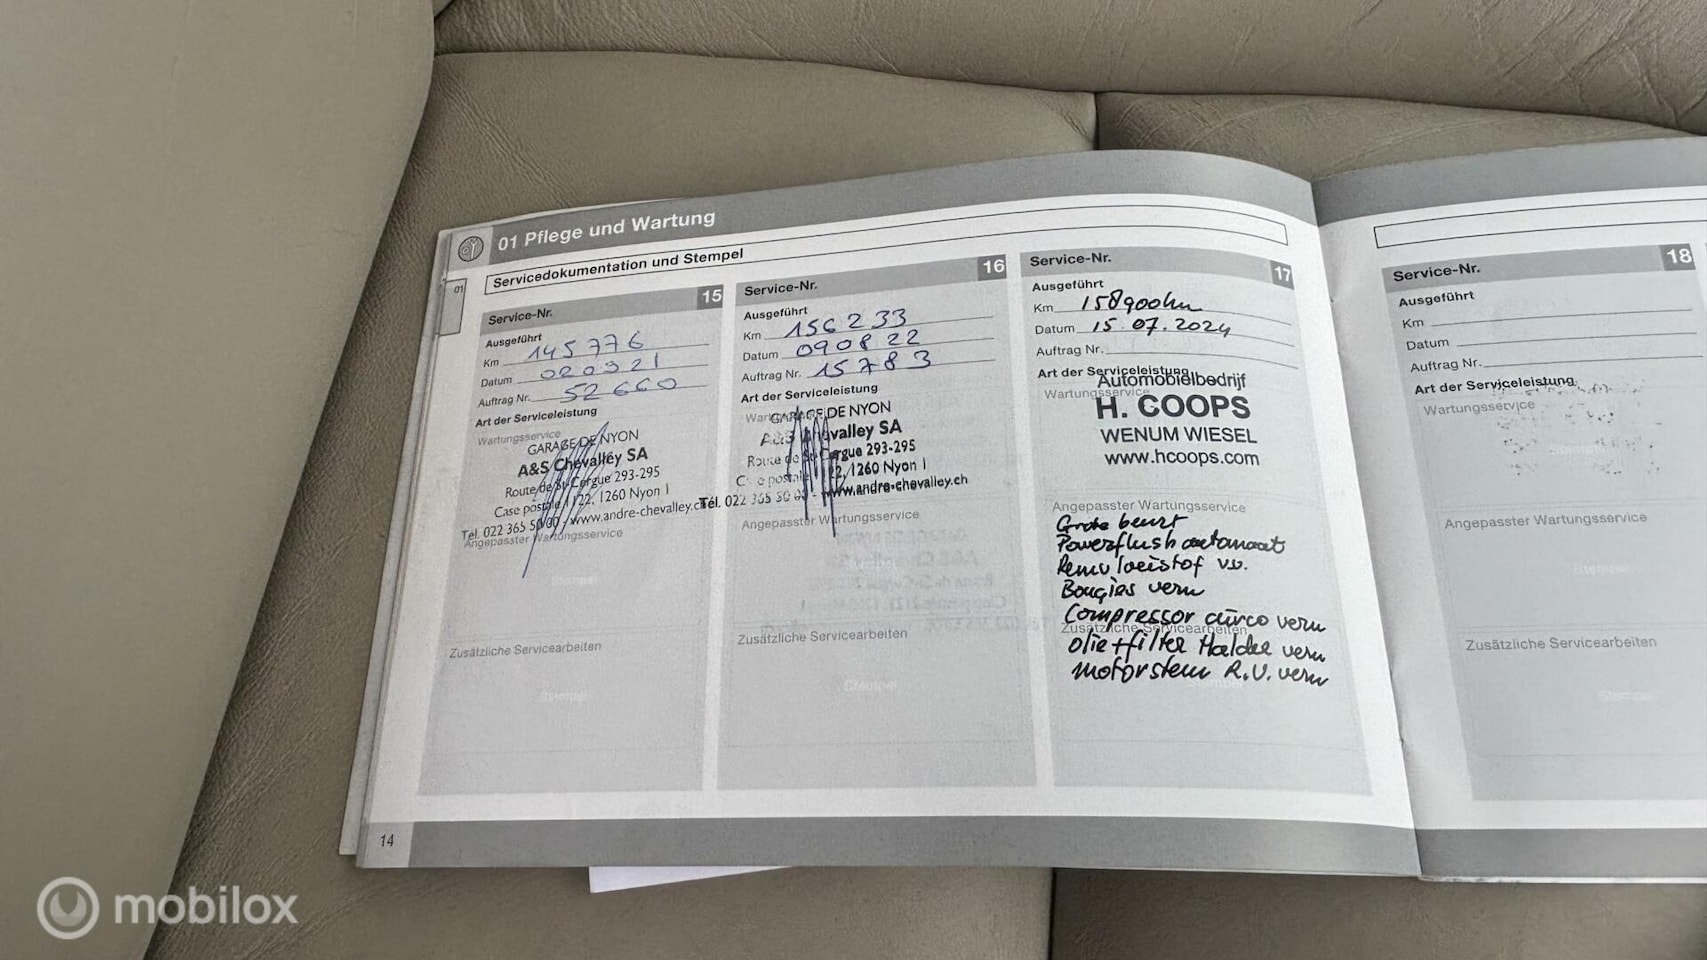 01 Pflege und Wartung
Servicedokumentation und Stempel
01
Service-Nr. 15
Ausgeführt
Km 145 776
Datum 020321
Auftrag Nr. 52660
Art der Serviceleistung
Wartungsservice
GARAGE DE NYON
A&S Chevalley SA
Route de St-Cergue 293-295
Case postale 1122, 1260 Nyon 1
Tél. 022 365 50 00 - www.andre-chevalley.ch
Angepasster Wartungsservice
Stempel
Zusätzliche Servicearbeiten
Stempel
Service-Nr. 16
Ausgeführt
Km 156 233
Datum 090822
Auftrag Nr. 15783
Art der Serviceleistung
GARAGE DE NYON
A&S Chevalley SA
Route de St-Cergue 293-295
1260 Nyon 1
Tél. 022 365 50 00 - www.andre-chevalley.ch
Angepasster Wartungsservice
Zusätzliche Servicearbeiten
Stempel
Service-Nr. 17
Ausgeführt
Km 158900km
Datum 15.07.2024
Auftrag Nr.
Art der Serviceleistung
Wartungsservice
Automobielbedrijf
H. COOPS
WENUM WIESEL
www.hcoops.com
Angepasster Wartungsservice
Grote beurt
Powerflush automaat
Remvloeistof vv.
Bougies vern
Compressor airco vern
Zusätzliche Servicearbeiten
olie+filter Haldex vern
motorsteun R.V. vern
Service-Nr. 18
Ausgeführt
Km
Datum
Auftrag Nr.
Art der Serviceleistung
Wartungsservice
Angepasster Wartungsservice
Stempel
Zusätzliche Servicearbeiten
Stempel
14
mobilox